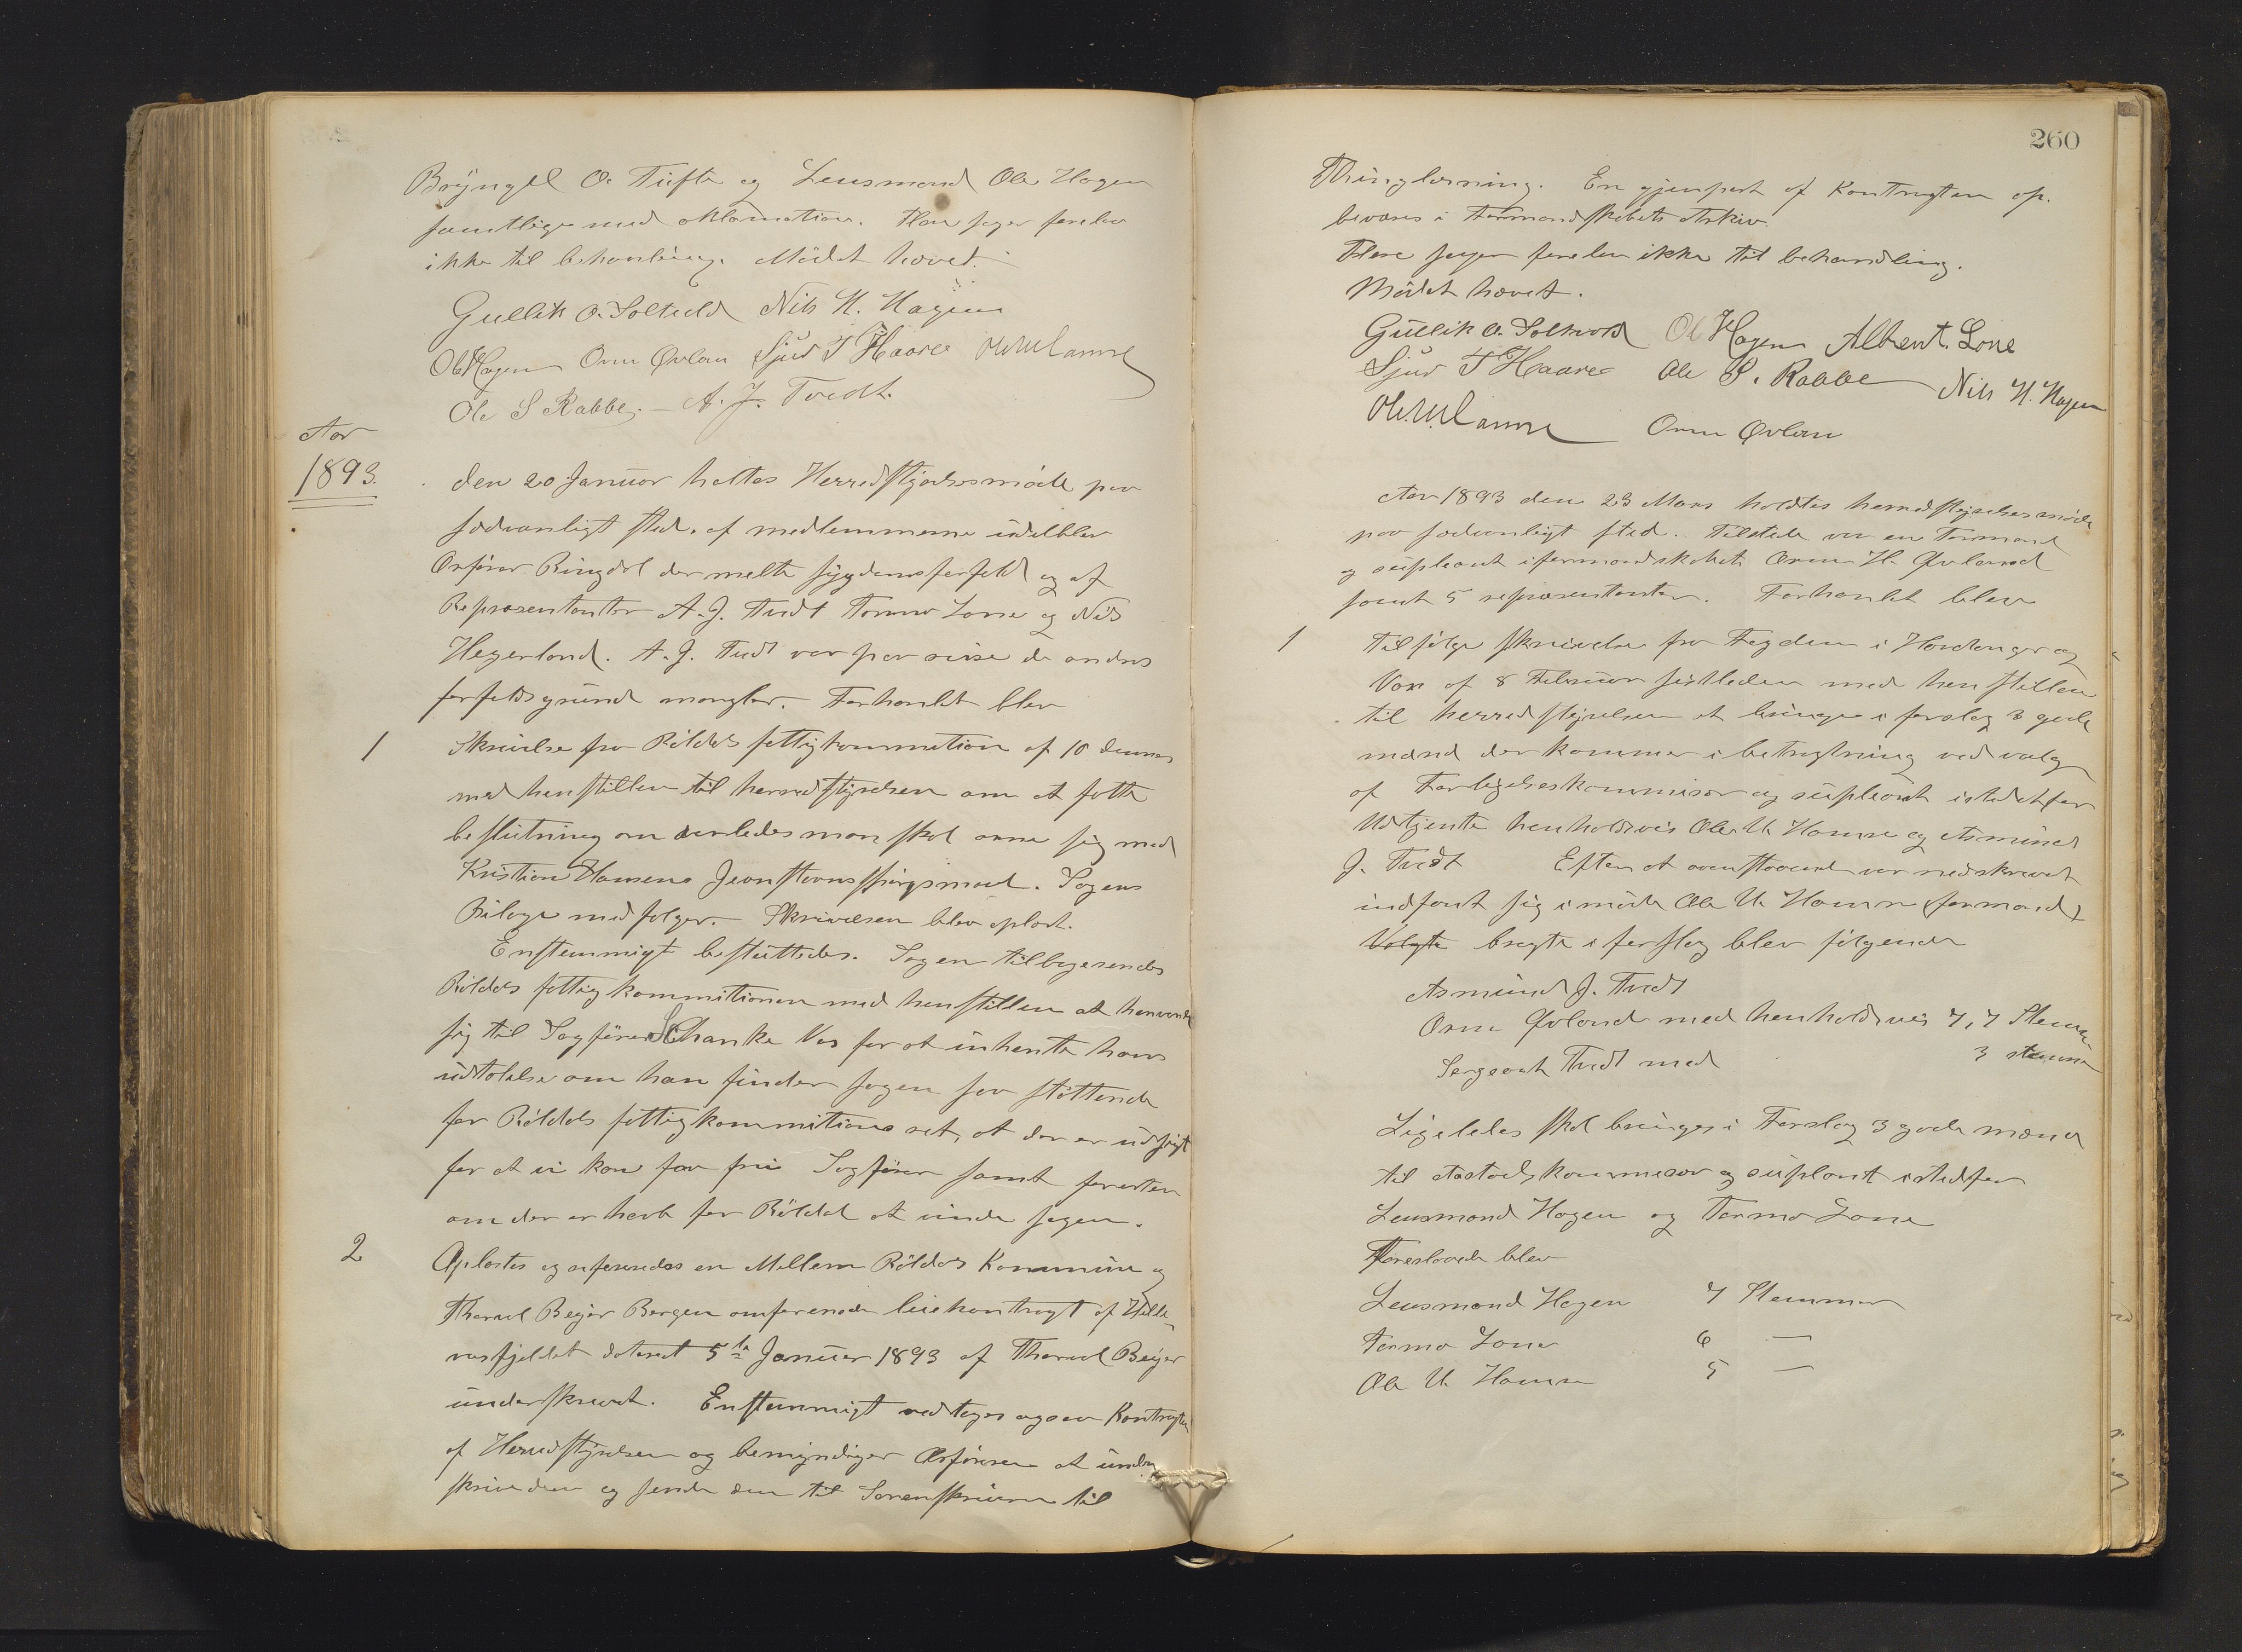 Bryngel O. Tufte og Lensmand Ole Hagen
samtlige med aklamation. Flere sager forelaa
ikke til behandling. Mödet hævet.
Gullik O. Solvold Nils H. Hagen
Ole Hagen Orm Øvland Sjur T Haare
Ole S Rabbe. — A. J. Tvedt.
Aar
1893. den 20 Januar holtes Herredstyrelsesmöde paa
sædvanligt sted. af medlemmerne udeblev
Orfören Ringdal der melte sygdomsforfald og af
Repræsentanter A. J. Tvedt Tormo Lone og Nils
Hegerland. A. J. Tvedt var paa reise de andres
forfaldsgrund mangler. Forhanlet blev
1 Skrivelse fra Röldals fattigkommition af 10 dennes
med henstillen til herredstyrelsen om at fatte
beslutning om hvorledes man skal anse sig med
Kristian Hansens Jeanstavns spörgsmaal. Sagens
Bilage medfölger. Skrivelsen blev oplæst.
Enstemmigt besluttedes. Sagen tilbagesendes
Röldals fattigkommitionen med henstillen at henvende
sig til Sagförer Schanke Vos for at inhente hans
udtalelse om han finder sagen saa stöttende
for Röldals fattigkommitions ret, at der er udsigt
for at vi kan faa fri Sagförer samt foresten
om der er haab for Röldal at vinde sagen.
2 Oplæstes og refereredes en Mellem Röldals Kommune og
Thorvel Beyer Bergen omförende leiekontragt af
vasfjeldet dateret 5te Januar 1893 af Thorvel Beyer
underskrevet. Enstemmigt vedtages ogsaa Kontragten
af Herredstyrelsen og bemyndiger Orföreren at under
skrive den og sende den til Sorenskriveren til
260
Thinglæsning. En gjenpart af Kontragten op-
bevares i Formandskabets Arkiv.
Flere sager forelaa ikke til behandling.
Mödet hævet.
Gullik O. Solvold Ole Hagen Albert. Lone
Sjur T Haare Ole S. Rabbe Nils H. Hagen
Orm Øvland
Aar 1893 den 23 Mars holdtes herredstyrelsesmöde
paa sædvanligt sted. Tilstede var en Formand
og supleant i formandskabet Orm H. Øvland
samt 5 repræsentanter. Forhanlet blev
1 Tilfölge skrivelse fra Fogden i Hardanger og
Vos af 8 Februar sistleden med henstillen
til herredstyrelsen at bringe i forslag 3 gode
mænd der kommer i betragtning ved valg
af Forligelseskommisær og supleant istedetfor
Udtjente henholdsvis Ole U. Hamre og Asmund
J. Tvedt Efter at ovenstaaende var nedskrevet
indfant sig i möde Ole U. Hamre (formand)
Valgte bragte i forslag blev fölgende
Asmund J. Tvedt
Orm Øvland med henholdsvis 7, 7 Stemmer
Sergeant Tvedt med 3 stemmer
Ligeledes skal bringes i Forslag 3 gode mænd
til Aastadskommisær og suplant istedfor
Lensmand Hagen og Tormo Lone
Foreslaaede blev
Lensmand Hagen 7 Stemmer
Tormo Lone 6 —
Ole U. Hamre 5 —